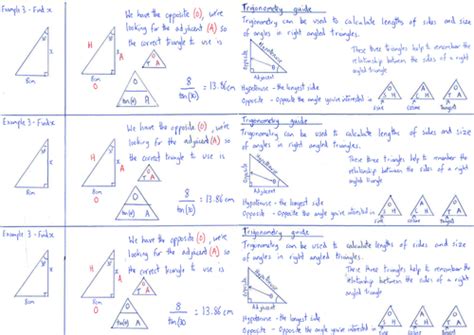 Example 3 - Find x
30°
x
8cm
H
30°
x
A
8cm
O
We have the opposite (O), we're
looking for the adjacent (A) so
the correct triangle to use is
O
T A
O
tan(30) A
8
tan(30)
= 13.86cm
Trigonometry guide
Trigonometry can be used to calculate lengths of sides and size
of angles in right angled triangles.
Opposite
Hypotenuse
Adjacent
These three triangles help to remember the
relationship between the sides of a right
angled triangle
Hypotenuse - the longest side
Opposite - Opposite the angle you're interested in
O
S H
Sine
A
C H
Cosine
O
T A
Tangent
Example 3 - Find x
30°
x
8cm
H
30°
x
A
8cm
O
We have the opposite (O), we're
looking for the adjacent (A) so
the correct triangle to use is
O
T A
O
tan(30) A
8
tan(30)
= 13.86cm
Trigonometry guide
Trigonometry can be used to calculate lengths of sides and size
of angles in right angled triangles.
Opposite
Hypotenuse
Adjacent
These three triangles help to remember the
relationship between the sides of a right
angled triangle
Hypotenuse - the longest side
Opposite - Opposite the angle you're interested in
O
S H
Sine
A
C H
Cosine
O
T A
Tangent
Example 3 - Find x
30°
x
8cm
H
30°
x
A
8cm
O
We have the opposite (O), we're
looking for the adjacent (A) so
the correct triangle to use is
O
T A
O
tan(30) A
8
tan(30)
= 13.86cm
Trigonometry guide
Trigonometry can be used to calculate lengths of sides and size
of angles in right angled triangles.
Opposite
Hypotenuse
Adjacent
These three triangles help to remember the
relationship between the sides of a right
angled triangle
Hypotenuse - the longest side
Opposite - Opposite the angle you're interested in
O
S H
Sine
A
C H
Cosine
O
T A
Tangent